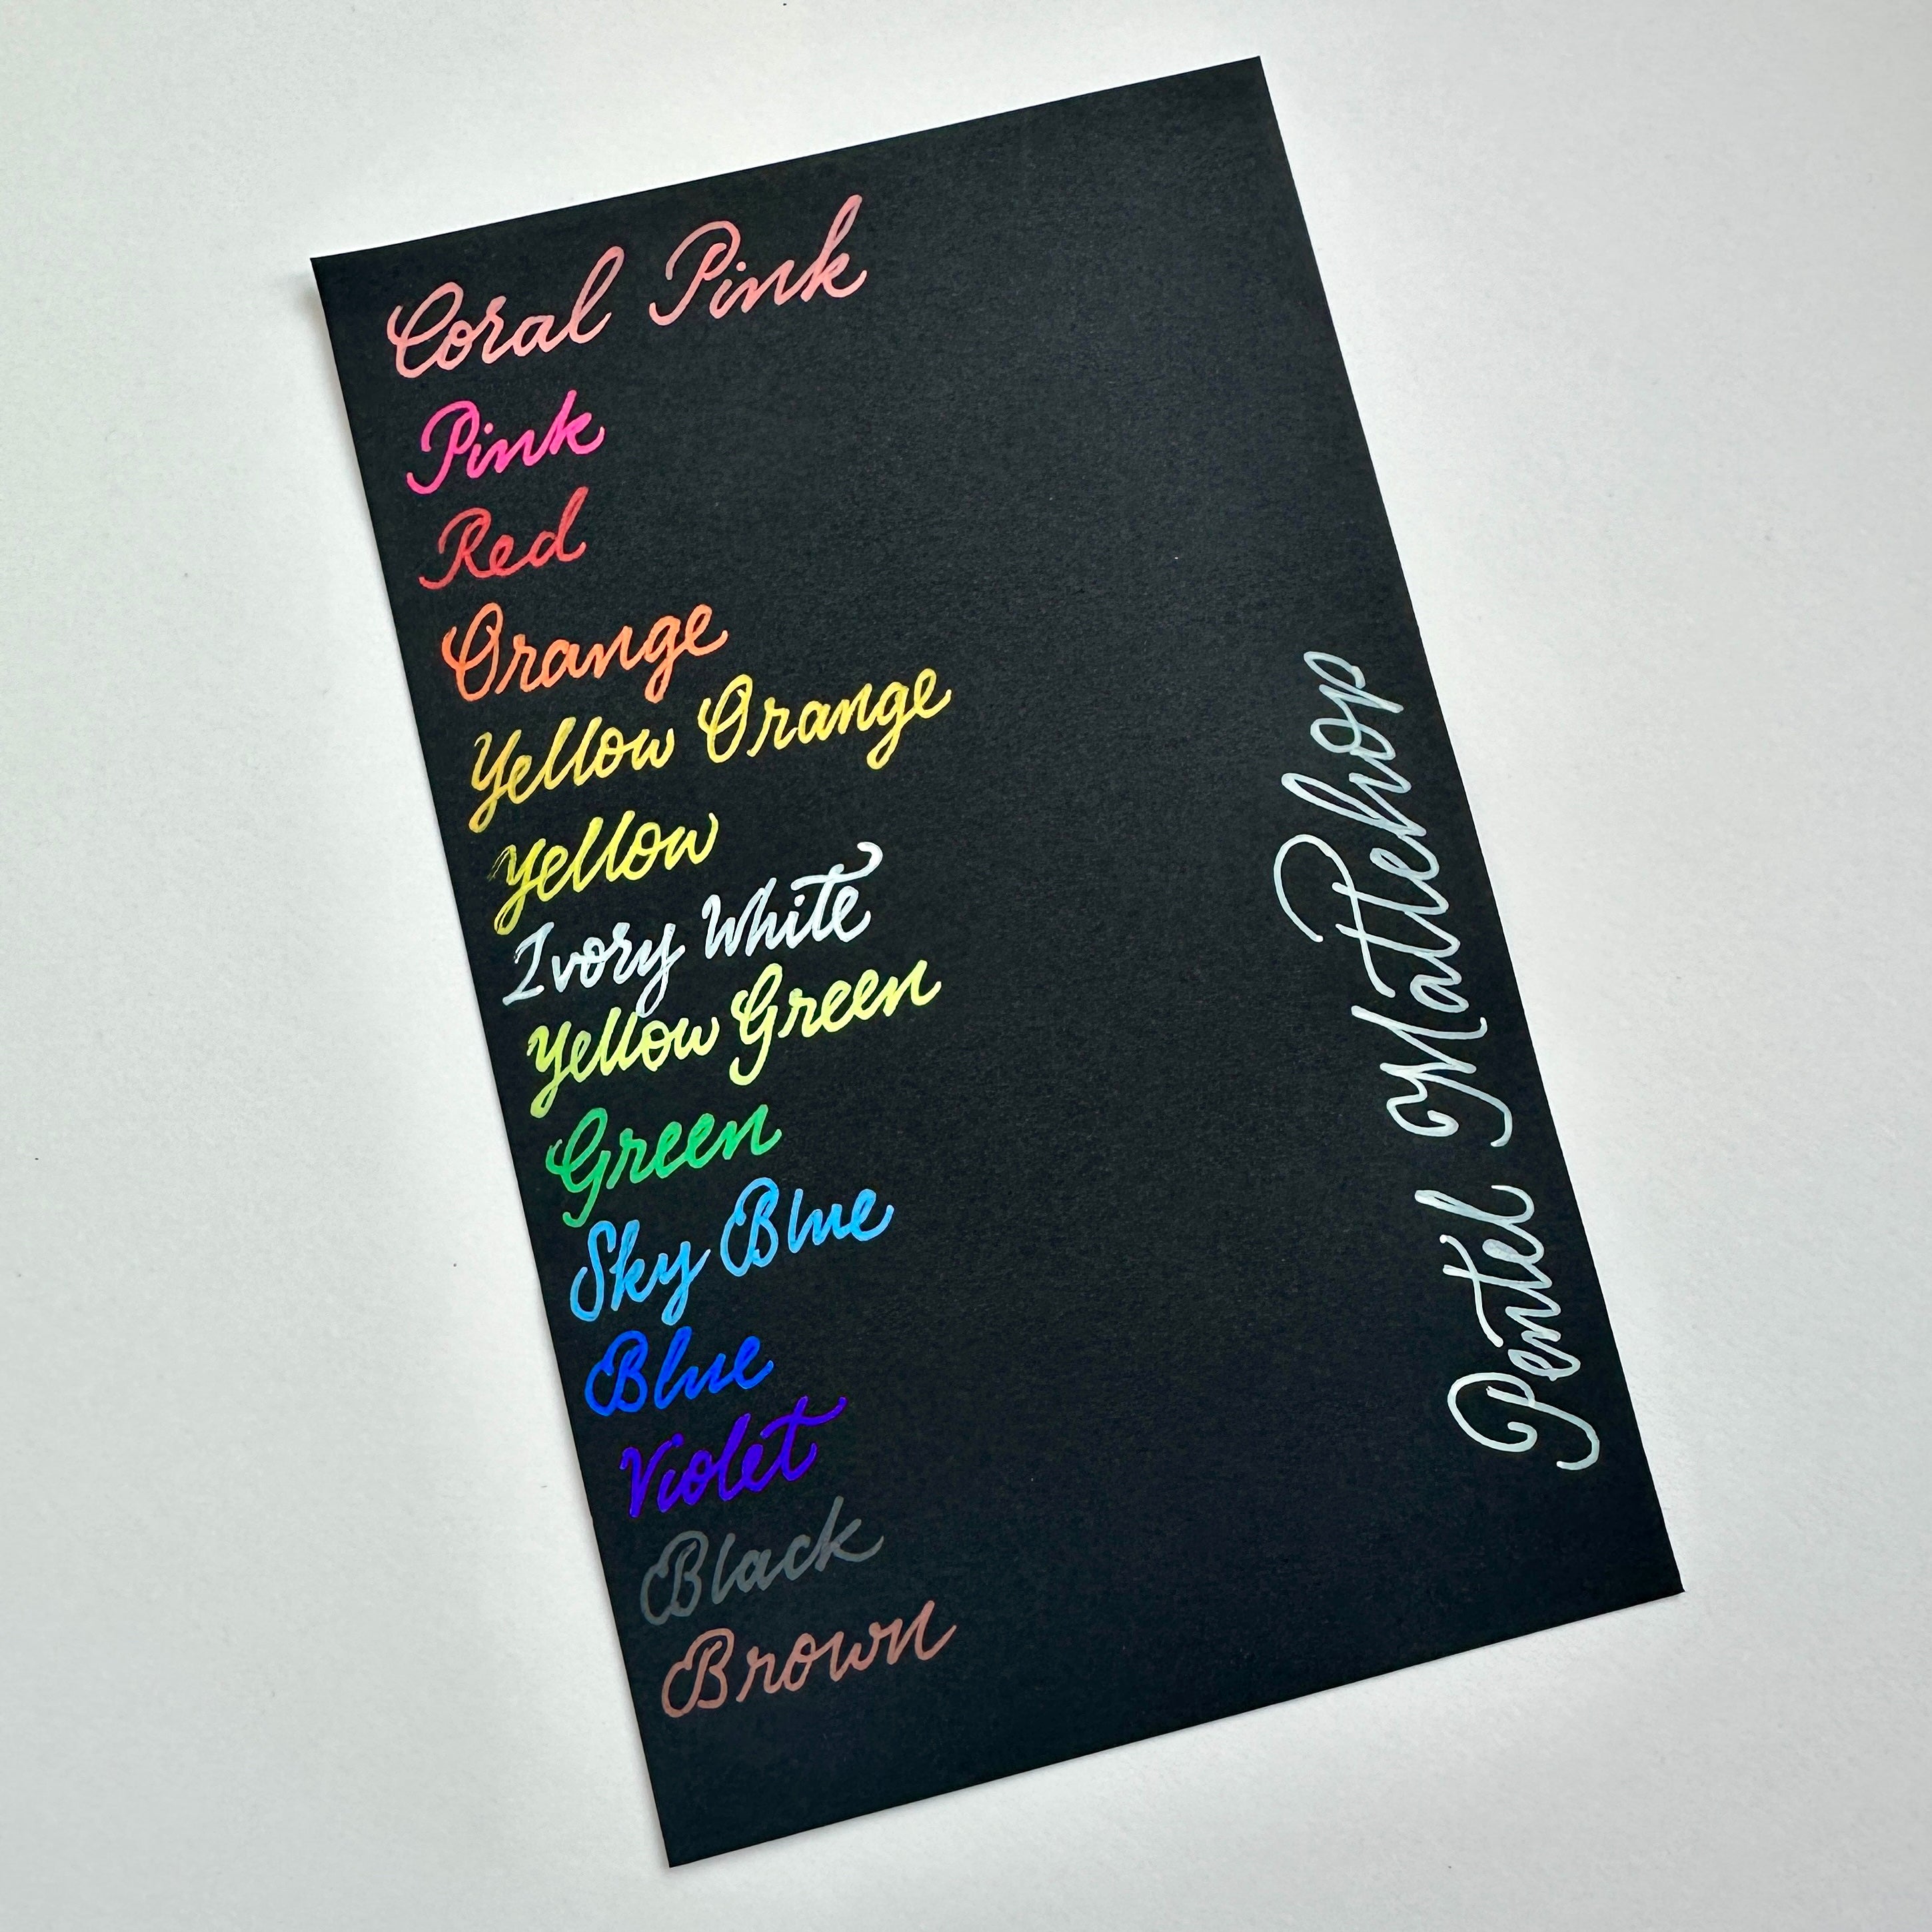 Coral Pink
Pink
Red
Orange
Yellow Orange
Yellow
Ivory White
Yellow Green
Green
Sky Blue
Blue
Violet
Black
Brown
Pentel Mattehop